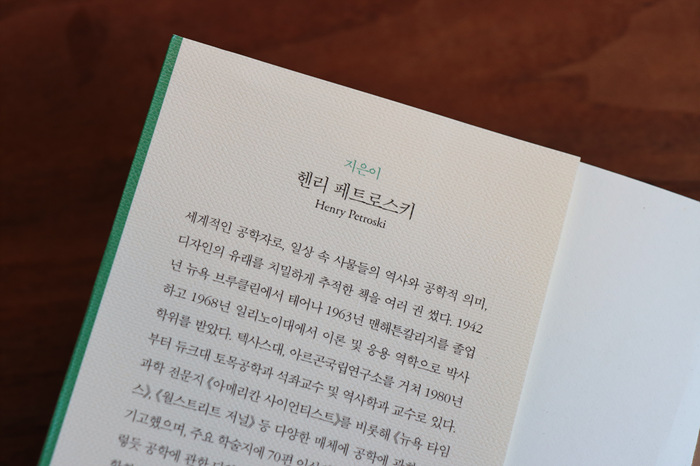 지은이
헨리 페트로스키
Henry Petroski
세계적인 공학자로, 일상 속 사물들의 역사와 공학적 의미,
디자인의 유래를 치밀하게 추적한 책을 여러 권 썼다. 1942
년 뉴욕 브루클린에서 태어나 1963년 맨해튼칼리지를 졸업
하고 1968년 일리노이대에서 이론 및 응용 역학으로 박사
학위를 받았다. 텍사스대, 아르곤국립연구소를 거쳐 1980년
부터 듀크대 토목공학과 석좌교수 및 역사학과 교수로 있다.
과학 전문지 《아메리칸 사이언티스트》를 비롯해 《뉴욕 타임
스》, 《월스트리트 저널》 등 다양한 매체에 공학에 관한
기고했으며, 주요 학술지에 70편
렇듯 공학에 관한